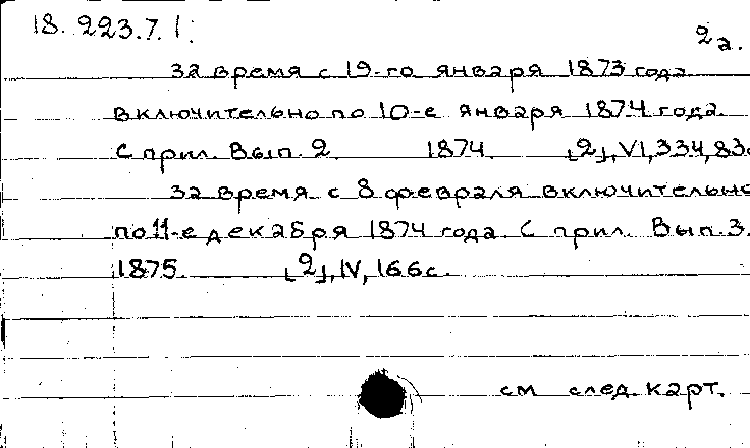 18.223.7.1:
2а.
за время с 19-го января 1873 года
включительно по 10-е января 1874 года.
С прил. Вып. 2. 1874. [2], VI, 334, 83с
за время с 8 февраля включительно
по 11-е декабря 1874 года. С прил. Вып. 3.
1875. [2], IV, 166с.
см след. карт.